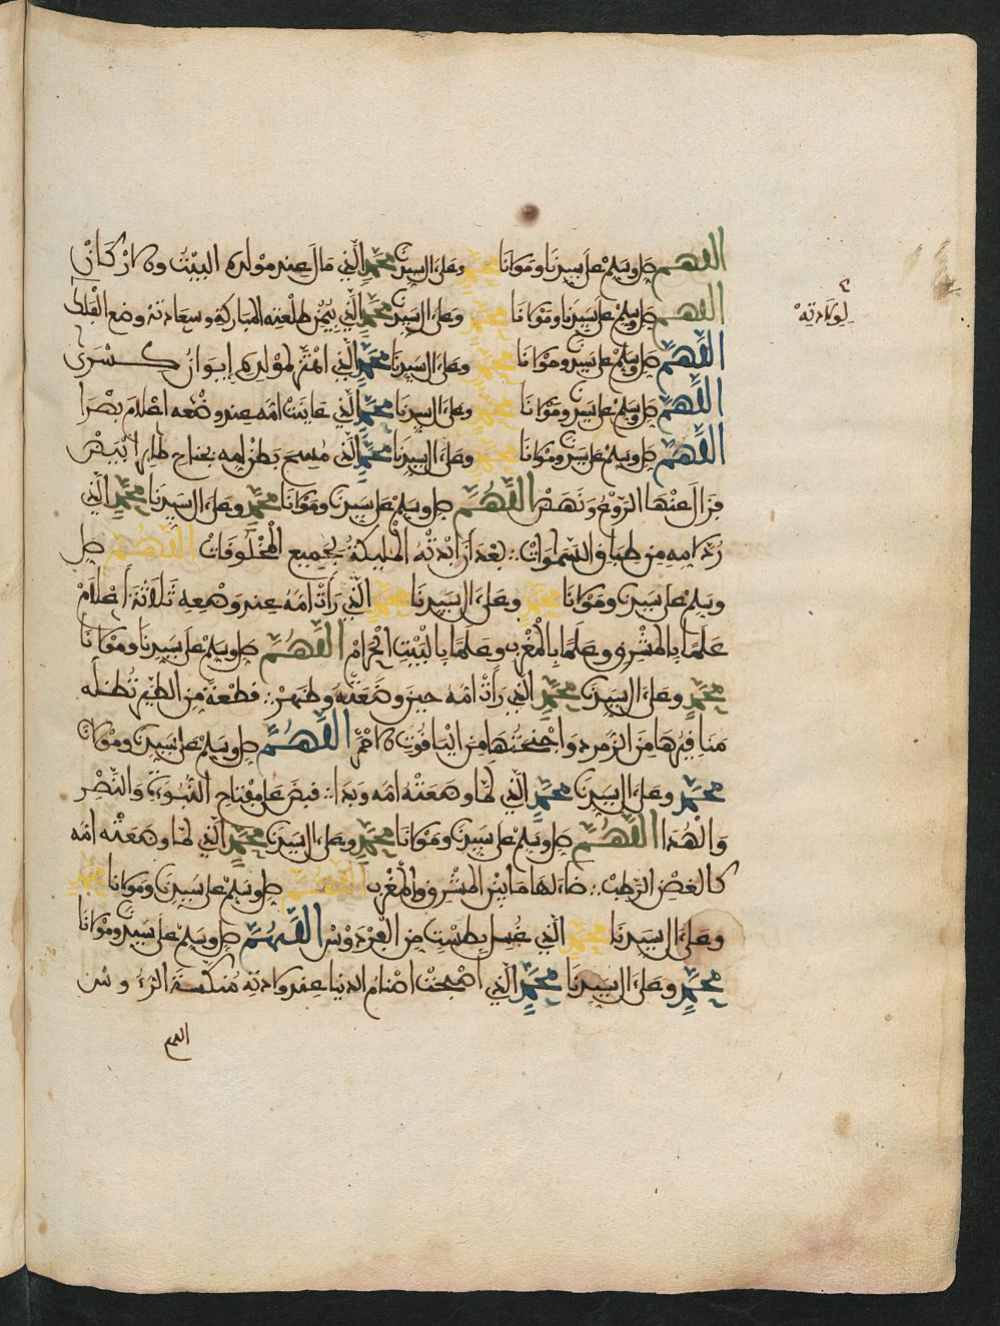 اللهم صل وسلم على سيدنا ومولانا محمد وعلى ال سيدنا محمد الذي مال عند مولده البيت والاركان
اللهم صل وسلم على سيدنا ومولانا محمد وعلى ال سيدنا محمد الذي بيمن طلعته المباركة وسعادته وضع
اللهم صل وسلم على سيدنا ومولانا محمد وعلى ال سيدنا محمد الذي اهتز لمولده إيوان كسرى
اللهم صل وسلم على سيدنا ومولانا محمد وعلى ال سيدنا محمد الذي عاينت امه عند وضعه اعلام بصرا
اللهم صل وسلم على سيدنا ومولانا محمد وعلى ال سيدنا محمد الذي مسح بطن امه بجناح طاير ابيض
فزال عنها الروع ونهض اللهم صل وسلم على سيدنا ومولانا محمد وعلى ال سيدنا محمد الذي
من طباق السموات بعد ان المليكة بجميع المخلوفات اللهم صل
وسلم على سيدنا ومولانا محمد وعلى ال سيدنا محمد الذي رأت امه عند وضعه ثلاثة أعلام
علما بالمشرق وعلما بالمغرب وعلما بالبيت الحرام اللهم صل وسلم على سيدنا ومولانا
محمد وعلى ال سيدنا محمد الذي رأت امه حين وضعته وظهر قطعة من الطير تظله
منافيرها من الزمرد واجنحتها من اليافوت الاحمر اللهم صل وسلم على سيدنا ومولانا
محمد وعلى ال سيدنا محمد الذي لما وضعته امه وبدا قبض على مفتاح النبوة والنصر
والهدا اللهم صل وسلم على سيدنا ومولانا محمد وعلى ال سيدنا محمد الذي لما وضعته امه
كالغصن الرطب ضاء لها ما بين المشرق والمغرب اللهم صل وسلم على سيدنا ومولانا محمد
وعلى ال سيدنا محمد الذي غسل بطست من الفردوس اللهم صل وسلم على سيدنا ومولانا
محمد وعلى ال سيدنا محمد الذي اصبحت اصنام الدنيا عند ولادته منكسة الرءوس
اللهم
لولادته